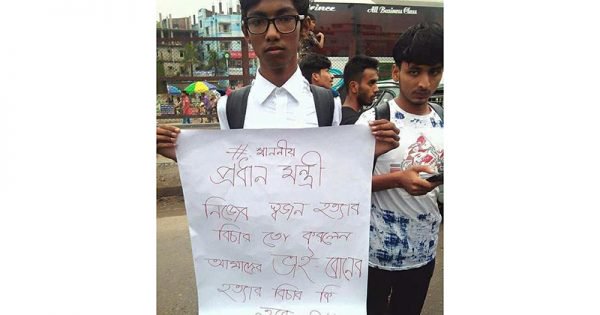 All Business Class
# মাননীয়
প্রধান মন্ত্রী
নিজের স্বজন হত্যার
বিচার তো করলেন
আমাদের ভাই-বোনের
হত্যার বিচার কি